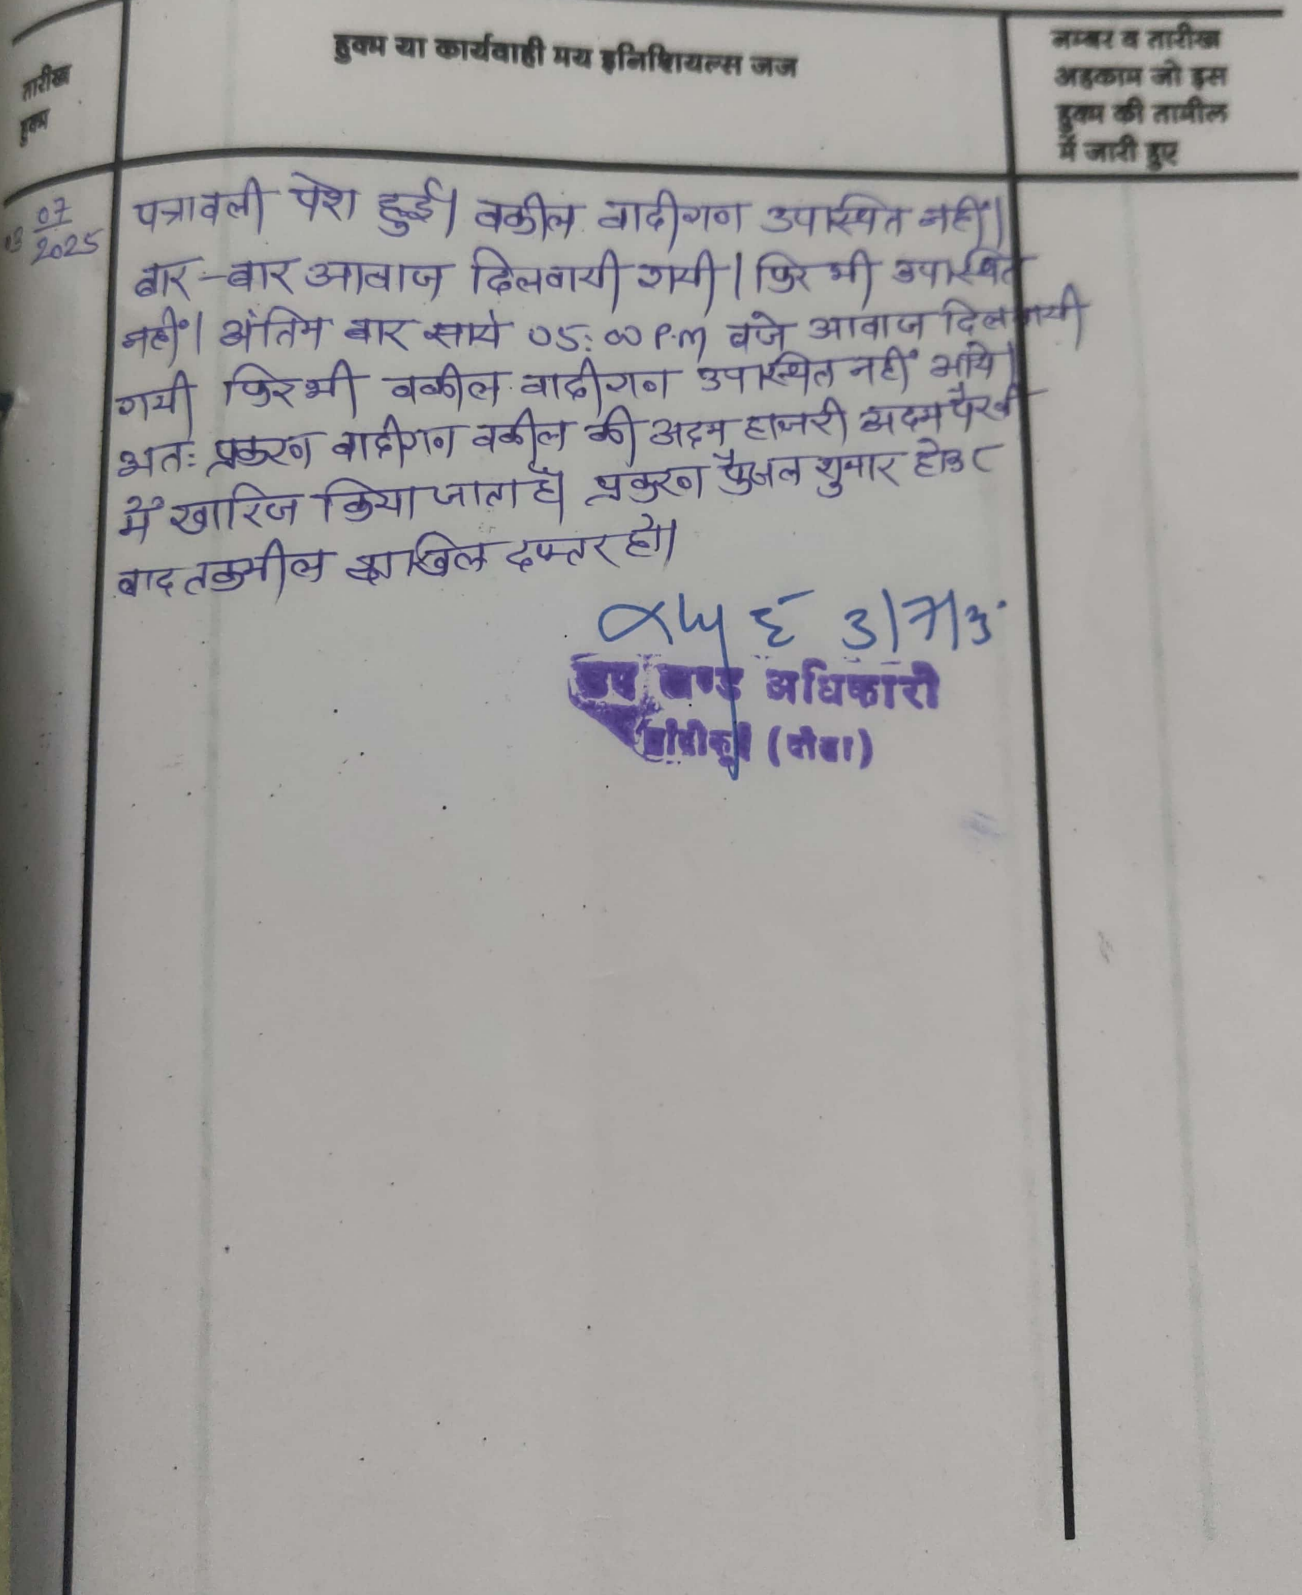 तारीख
हुक्म
हुक्म या कार्यवाही मय इनिशियल्स जज
नम्बर व तारीख
अहकाम जो इस
हुक्म की तामील
में जारी हुए
03/07/2025
पत्रावली पेश हुई। वकील वादीगण उपस्थित नहीं।
बार-बार आवाज दिलवायी गयी। फिर भी उपस्थित
नहीं। अंतिम बार सायं 05:00 P.M बजे आवाज दिलवायी
गयी फिर भी वकील वादीगण उपस्थित नहीं आये।
अतः प्रकरण वादीगण वकील की अदम हाजरी अदम पैरवी
में खारिज किया जाता है। प्रकरण फैजल शुमार होकर
बाद तकमील दाखिल दफ्तर हो।
3/7/
उप खण्ड अधिकारी
बांदीकुई (दौसा)